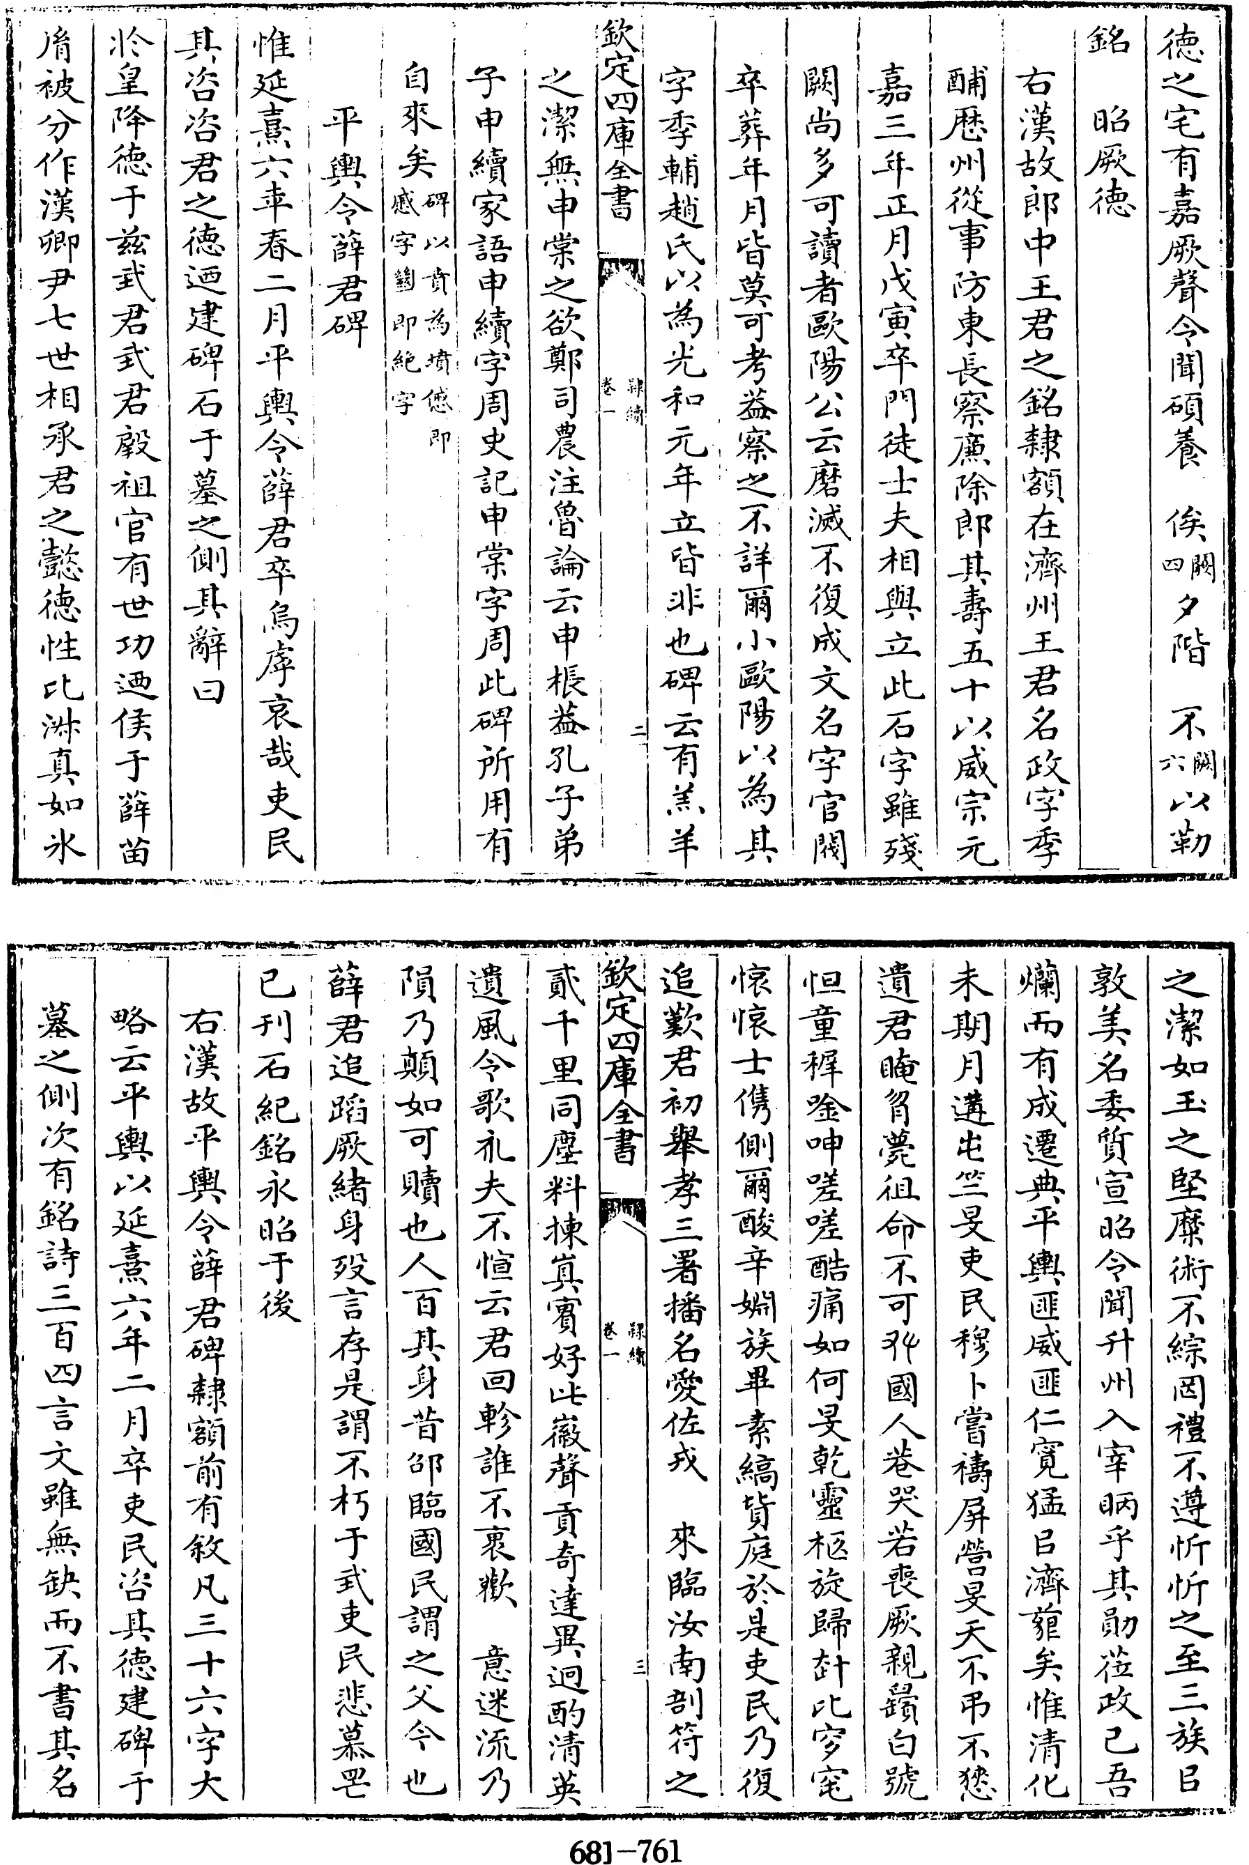 德之宅有嘉厥聲令聞碩養　俟闕四夕階　不闕六以勒
銘　昭厥德
右漢故郎中王君之銘隸額在濟州王君名政字季
酺歷州從事防東長察廉除郎其壽五十以威宗元
嘉三年正月戊寅卒門徒士夫相與立此石字雖殘
闕尚多可讀者歐陽公云磨滅不復成文名字官閥
卒葬年月皆莫可考益察之不詳爾小歐陽以為其
字季輔趙氏以為光和元年立皆非也碑云有羔羊
欽定四庫全書　隸續卷一　二
之潔無申棠之欲鄭司農注魯論云申棖益孔子弟
子申續家語申續字周史記申棠字周此碑所用有
自來矣碑以賁為墳僽即慼字㡭即絕字
平輿令薛君碑
惟延熹六年春二月平輿令薛君卒烏虖哀哉吏民
其咨咨君之德迺建碑石于墓之側其辭曰
於皇降德于茲式君式君㲉祖官有世功迺侯于薛苗
胤被分作漢卿尹七世相承君之懿德性比淋真如氷
之潔如玉之堅糜術不綜罔禮不遵忻忻之至三族㠯
敦美名委質宣昭令聞升州入宰昞乎其勛莅政已吾
爛而有成遷典平輿匪威匪仁寬猛㠯濟雍矣惟清化
未期月遘屯竺旻吏民穆卜嘗禱屏營旻天不弔不憖
遺君晻曶薨徂命不可 國人巷哭若喪厥親鼳白號
怛童穉唫呻嗟嗟酷痛如何旻乾靈柩旋歸 比穸窀
懷懷士儁側爾酸辛婣族畢素縞貲庭於是吏民乃復
追歎君初舉孝三署播名愛佐戎　來臨汝南剖符之
欽定四庫全書　隸續卷一　三
貳千里同塵料揀真賓好此徽聲貢奇達異迥酌清英
遺風令歌礼夫不愃云君回軫誰不裹歡　意迷流乃
隕乃顛如可贖也人百其身昔邵臨國民謂之父今也
薛君追蹈厥緒身歿言存是謂不朽于式吏民悲慕罡
已刋石紀銘永昭于後
右漢故平輿令薛君碑隸額前有敘凡三十六字大
略云平輿以延熹六年二月卒吏民咨其德建碑于
墓之側次有銘詩三百四言文雖無缺而不書其名
681-761